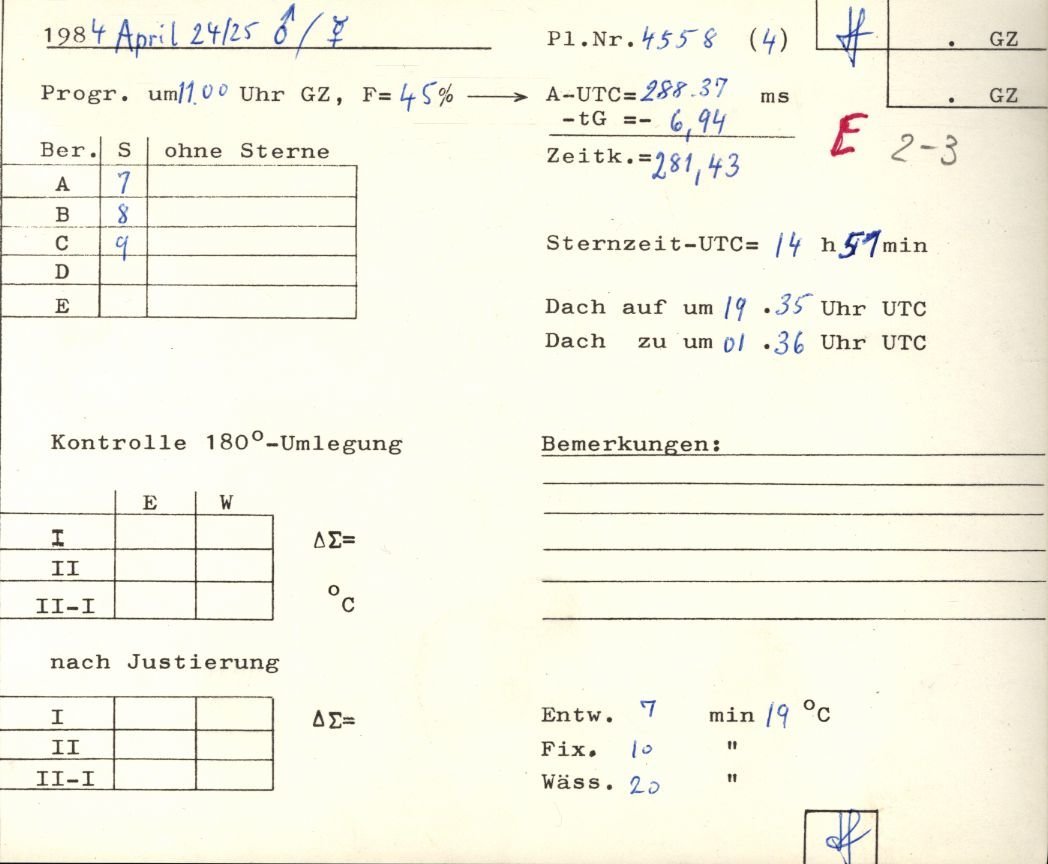 1984 April 24/25 ♂/☿ Pl.Nr. 4558 (4) . GZ
Progr. um 11.00 Uhr GZ, F= 45% → A-UTC= 288.37 ms . GZ
-tG =- 6,94
E 2-3
Zeitk.= 281,43
Ber. S ohne Sterne
A 7
B 8
C 9
D
E
Sternzeit-UTC= 14 h 57 min
Dach auf um 19 .35 Uhr UTC
Dach zu um 01 .36 Uhr UTC
Kontrolle 180°-Umlegung
E W
I ΔΣ=
II
II-I °C
nach Justierung
I ΔΣ=
II
II-I
Bemerkungen:
Entw. 7 min 19 °C
Fix. 10 "
Wäss. 20 "